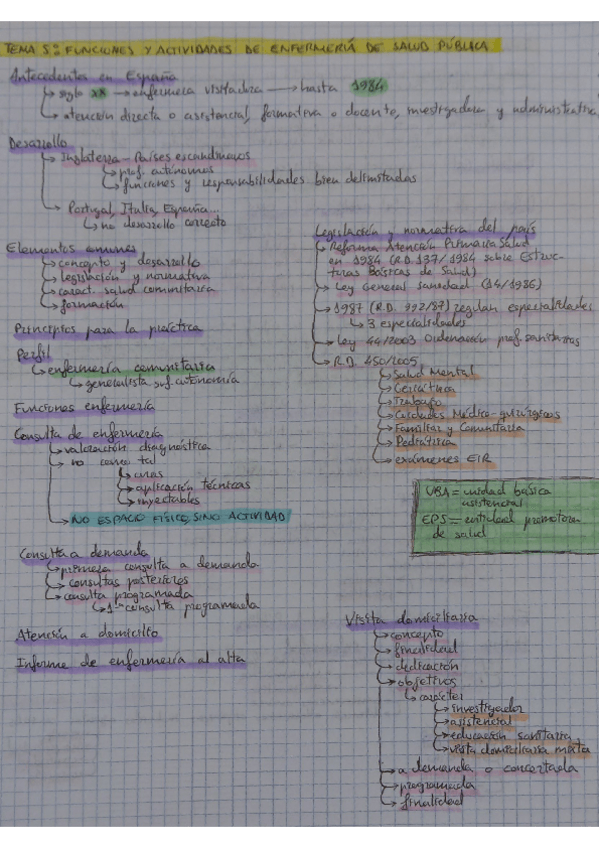 TEMA 5: FUNCIONES Y ACTIVIDADES DE ENFERMERÍA DE SALUD PÚBLICA
Antecedentes en España
siglo XX → enfermera visitadora → hasta 1984
atención directa o asistencial, formativa o docente, investigadora y administrativa
Desarrollo
Inglaterra - Países escandinavos
prof. autónomas
funciones y responsabilidades bien delimitadas
Portugal, Italia, España...
no desarrollo correcto
Elementos comunes
concepto y desarrollo
legislación y normativa
caract. salud comunitaria
formación
Principios para la práctica
Perfil
enfermería comunitaria
generalista suf. autonomía
Funciones enfermería
Consulta de enfermería
valoración diagnóstica
no como tal
curas
aplicación técnicas
inyectables
NO ESPACIO FÍSICO, SINO ACTIVIDAD
Consulta a demanda
primera consulta a demanda
consultas posteriores
consulta programada
1ª consulta programada
Atención a domicilio
Informe de enfermería al alta
Legislación y normativa del país
Reforma Atención Primaria Salud
en 1984 (R.D. 137/1984 sobre Estruc-
turas Básicas de Salud)
Ley General sanidad (14/1986)
1987 (R.D. 992/87) regulan especialidades
3 especialidades
Ley 44/2003 Ordenación prof. sanitarias
R.D. 450/2005
Salud Mental
Geriátrica
Trabajo
Cuidados Médico-quirúrgicos
Familiar y Comunitaria
Pediátrica
exámenes EIR
UBA = unidad básica
asistencial
EPS = entidad promotora
de salud
Visita domiciliaria
concepto
finalidad
dedicación
objetivos
carácter
investigador
asistencial
educación sanitaria
visita domiciliaria mixta
a demanda o concertada
programada
finalidad